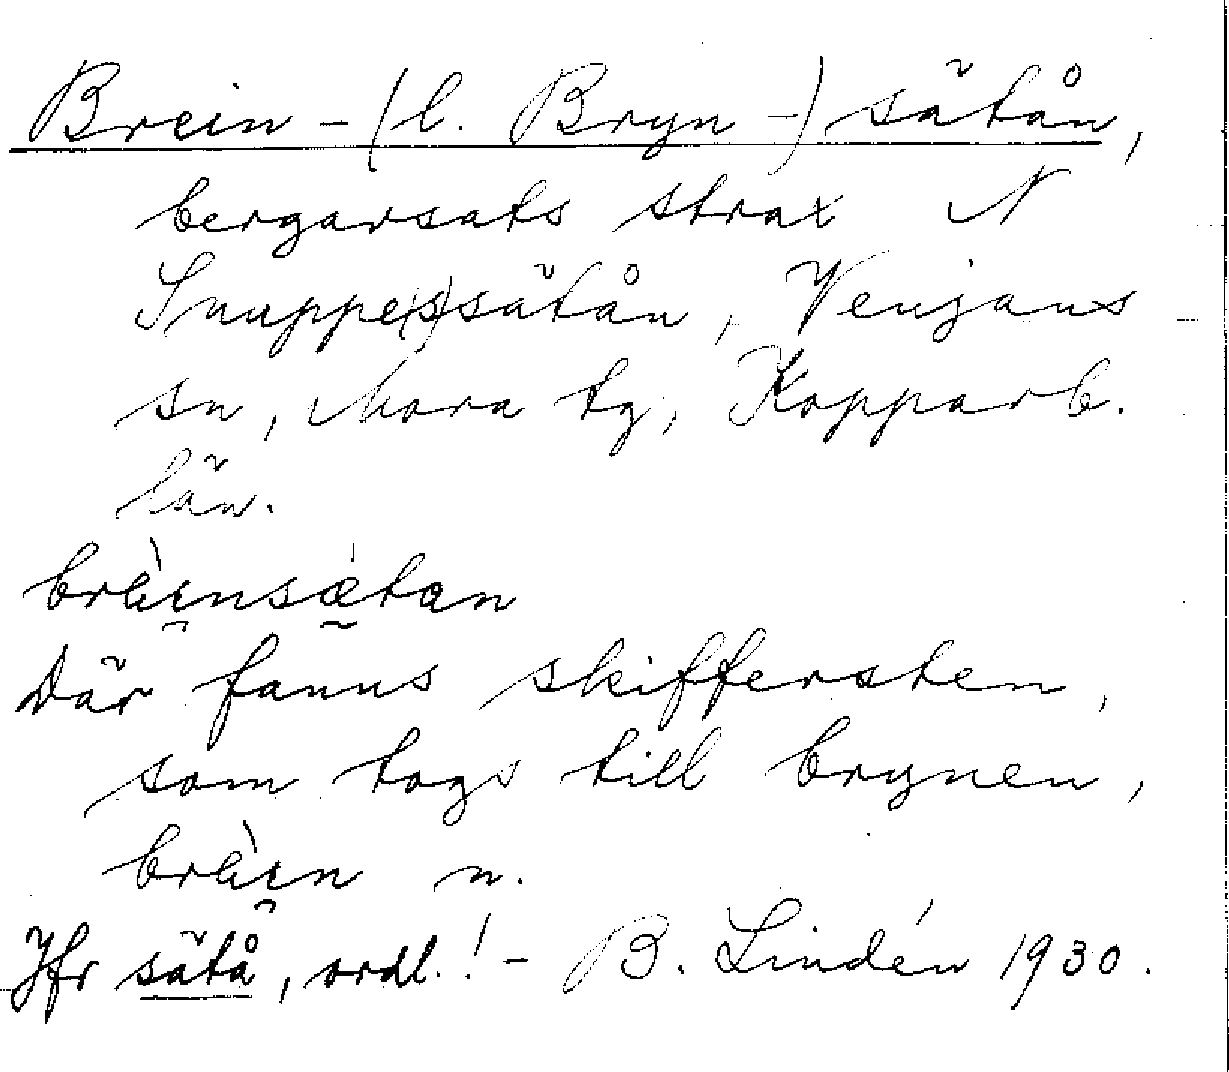 Brein-(l. Bryn-) sätån,
bergarsats strax N
Snuppe(s)sätån, Venjans
sn, Mora tg, Kopparb.
län.
brèinsætan
Där fanns skiffersten,
som togs till brynen,
brèin n.
Jfr sätå, ordl.! - B. Lindén 1930.